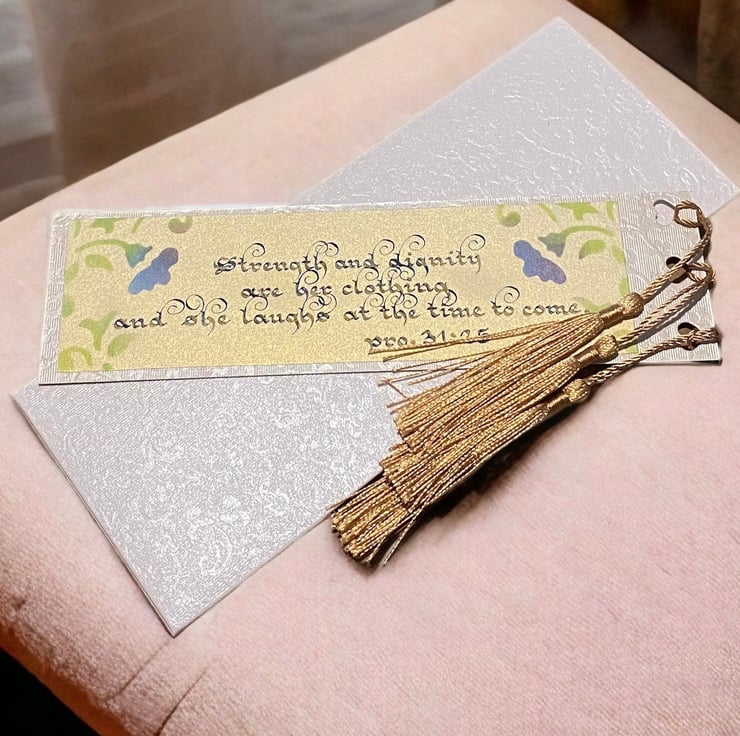 Strength and dignity
are her clothing
and she laughs at the time to come.
pro. 31:25